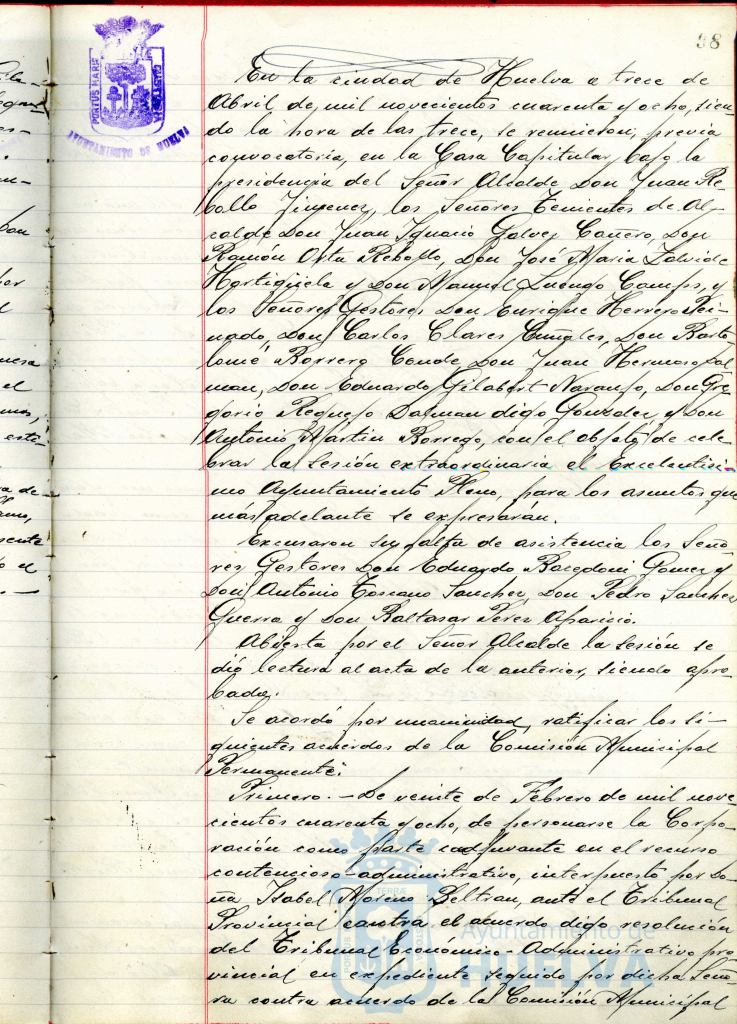 98
PORTUS MARIS
AYUNTAMIENTO DE HUELVA
En la ciudad de Huelva a trece de
Abril de mil novecientos cuarenta y ocho, sien-
do la hora de las trece, se reunieron, previa
convocatoria, en la Casa Capitular, bajo la
presidencia del Señor Alcalde Don Juan Re-
bollo Jimenez, los Señores Tenientes de Al-
calde Don Juan Ignacio Galvez Cañero, Don
Ramón Orta Rebollo, Don José María
y Don Manuel Luengo Campos, y
los Señores Gestores Don Enrique Herrero Pei-
nado, Don Carlos Clares Don Barto-
lomé Borrero Conde, Don Juan Hermoso Pal-
man, Don Eduardo Gilabert Naranjo, Don Gre-
gorio Requejo Dalman digo Gonzalez, y Don
Antonio Martin Borrego, con el objeto de cele-
brar la sesión extraordinaria el Excelentisi-
mo Ayuntamiento Pleno, para los asuntos que
más adelante se expresarán.
Excusaron su falta de asistencia los Seño-
res Gestores Don Eduardo Gomez y
Don Antonio Toscano Sanchez, Don Pedro Sanchez
Guerra y Don Baltasar Perez Aparicio.
Abierta por el Señor Alcalde la sesión se
dió lectura al acta de la anterior, siendo apro-
bada.
Se acordó por unanimidad, ratificar los si-
guientes acuerdos de la Comisión Municipal
Permanente:
Primero.- De veinte de Febrero de mil nove-
cientos cuarenta y ocho, de personarse la Corpo-
ración como parte coadyuvante en el recurso
contencioso-administrativo, interpuesto por Do-
ña Isabel Moreno Beltran, ante el Tribunal
Provincial contra el acuerdo digo resolución
del Tribunal Económico-Administrativo pro-
vincial en expediente seguido por dicha Seño-
ra contra acuerdo de la Comisión Municipal
Ayuntamiento de
HUELVA